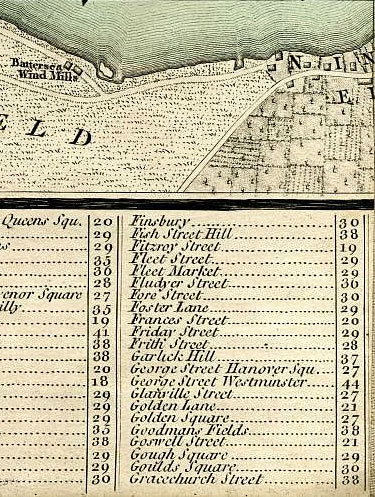 Battersea
Wind Mills
NIN
E
ELD
Queens Squ. 20
29
29
35
36
28
venor Square 27
illy 35
19
41
38
38
20
18
29
29
29
35
38
29
29
30
Finsbury 30
Fish Street Hill 38
Fitzroy Street 19
Fleet Street 29
Fleet Market 29
Fludyer Street 36
Fore Street 30
Foster Lane 29
Frances Street 20
Friday Street 29
Frith Street 28
Garlick Hill 37
George Street Hanover Squ. 27
George Street Westminster 44
Glanville Street 27
Golden Lane 21
Golden Square 27
Goodmans Fields 38
Goswell Street 21
Gough Square 29
Goulds Square 30
Gracechurch Street 38